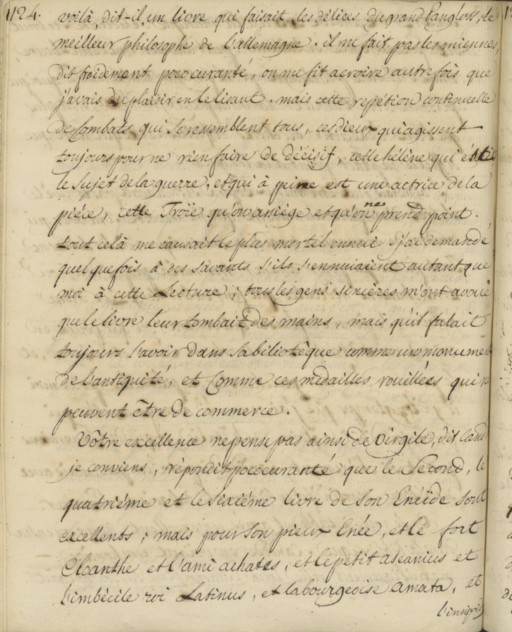 124.
voilà, dit-il, un livre qui faisait les délices du grand Panglofs, le
meilleur philosophe de l'allemagne. il ne fait pas les miennes,
dit froidement pococuranté, on me fit acroire autrefois que
j'avais du plaisir en le lisant. mais cette repétition continuelle
de Combats qui se resemblent tous, ces dieux qui agissent
toujours pour ne rien faire de décisif, cette hélène qui est
le sujet de la guerre, et qui à peine est une actrice de la
pièce, cette Troïe qu'on assiège et qu'on ne prend point.
tout celà me causait le plus mortel ennui. j'ai demandé
quelquefois à des savants s'ils s'ennuiaient autant que
moi à cette Lecture; tous les gens sincères m'ont avoué
que le livre leur tombait des mains, mais qu'il falait
toujours l'avoir dans sa bibliotèque comme un monument
de l'antiquité, et Comme ces médailles rouillées qui ne
peuvent être de commerce.
Vôtre excellence ne pense pas ainsi de Virgile, dit Cand
je conviens, répondit pococuranté que le Second, le
quatrième et le sixième livre de son Enéïde sont
excellents; mais pour son pieux Enée, et le fort
Cloanthe et l'ami achates, et le petit ascanius et
l'imbécile roi Latinus, et la bourgeoise amata, et
l'insipide